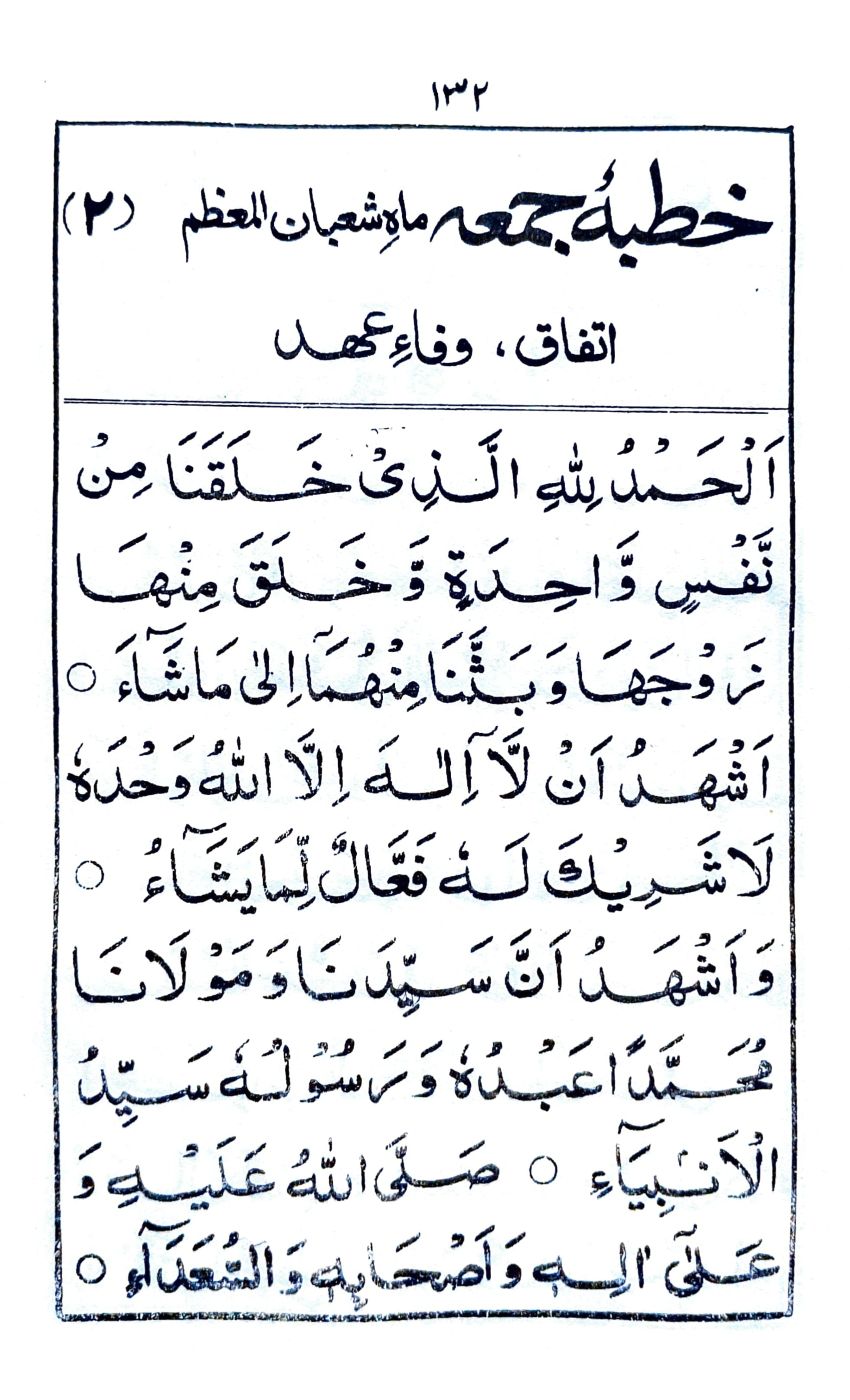 ۱۳۲
خطبۂ جمعہ ماہِ شعبان المعظم (۲)
اتفاق ، وفاءِ عہد
اَلْحَمْدُ لِلّٰهِ الَّذِىْ خَلَقَنَا مِنْ
نَّفْسٍ وَّاحِدَةٍ وَّخَلَقَ مِنْهَا
زَوْجَهَا وَبَثَّنَا مِنْهُمَآ اِلٰى مَاشَآءَ ○
اَشْهَدُ اَنْ لَّآ اِلٰهَ اِلَّا اللّٰهُ وَحْدَهٗ
لَا شَرِيْكَ لَهٗ فَعَّالٌ لِّمَا يَشَآءُ ○
وَاَشْهَدُ اَنَّ سَيِّدَنَا وَمَوْلَانَا
مُحَمَّدًا عَبْدُهٗ وَرَسُوْلُهٗ سَيِّدُ
الْاَنْبِيَآءِ ○ صَلَّى اللّٰهُ عَلَيْهِ وَ
عَلٰٓى اٰلِهٖ وَاَصْحَابِهٖ وَالسُّعَدَآءِ ○